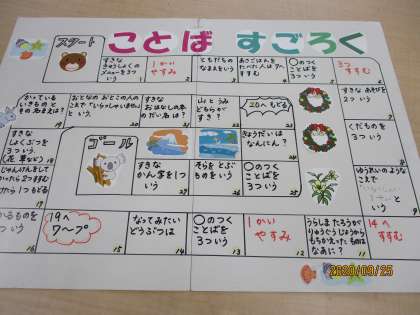 ことば すごろく
スタート
すきな
きゅうしょくの
メニューを3つ
いう
1
1かい
やすみ
2
ともだちの
なまえをいう
3
あさごはんを
たべた人は7へ
すすむ
4
〇のつく
ことばを
3つ いう
5
3つ
すすむ
6
すきな あそびを
2つ いう
7
くだものを
3つ いう
8
ゆうれいのような
こえで
9
10
うらしまたろうが
りゅうぐうじょうから
もちかえったものは
なあに?
11
14へ
すすむ
1かい
やすみ
12
〇のつく
ことばを
3つ いう
13
なってみたい
どうぶつは
14
19へ
ワープ
15
かるものを
3つ いう
16
じゃんけんをして
かったら2つすすむ
けたら1つもどる
17
すきな
しょくぶつを
3つ いう
(花 草など)
18
かっている
いきものと
その名まえは?
19
おとなの おとこの人の
こえで「いらっしゃいませ」
と いう
20
すきな
おはなしの本
のだい名は?
21
山と うみ
どちらが
すき?
22
20へ もどる
きょうだいは
なんにん?
24
〇のつく
ことばを
3つ いう
25
そらを とぶ
ものを いう
26
すきな
かん字を1つ
いう
29
ゴール
2020/09/25